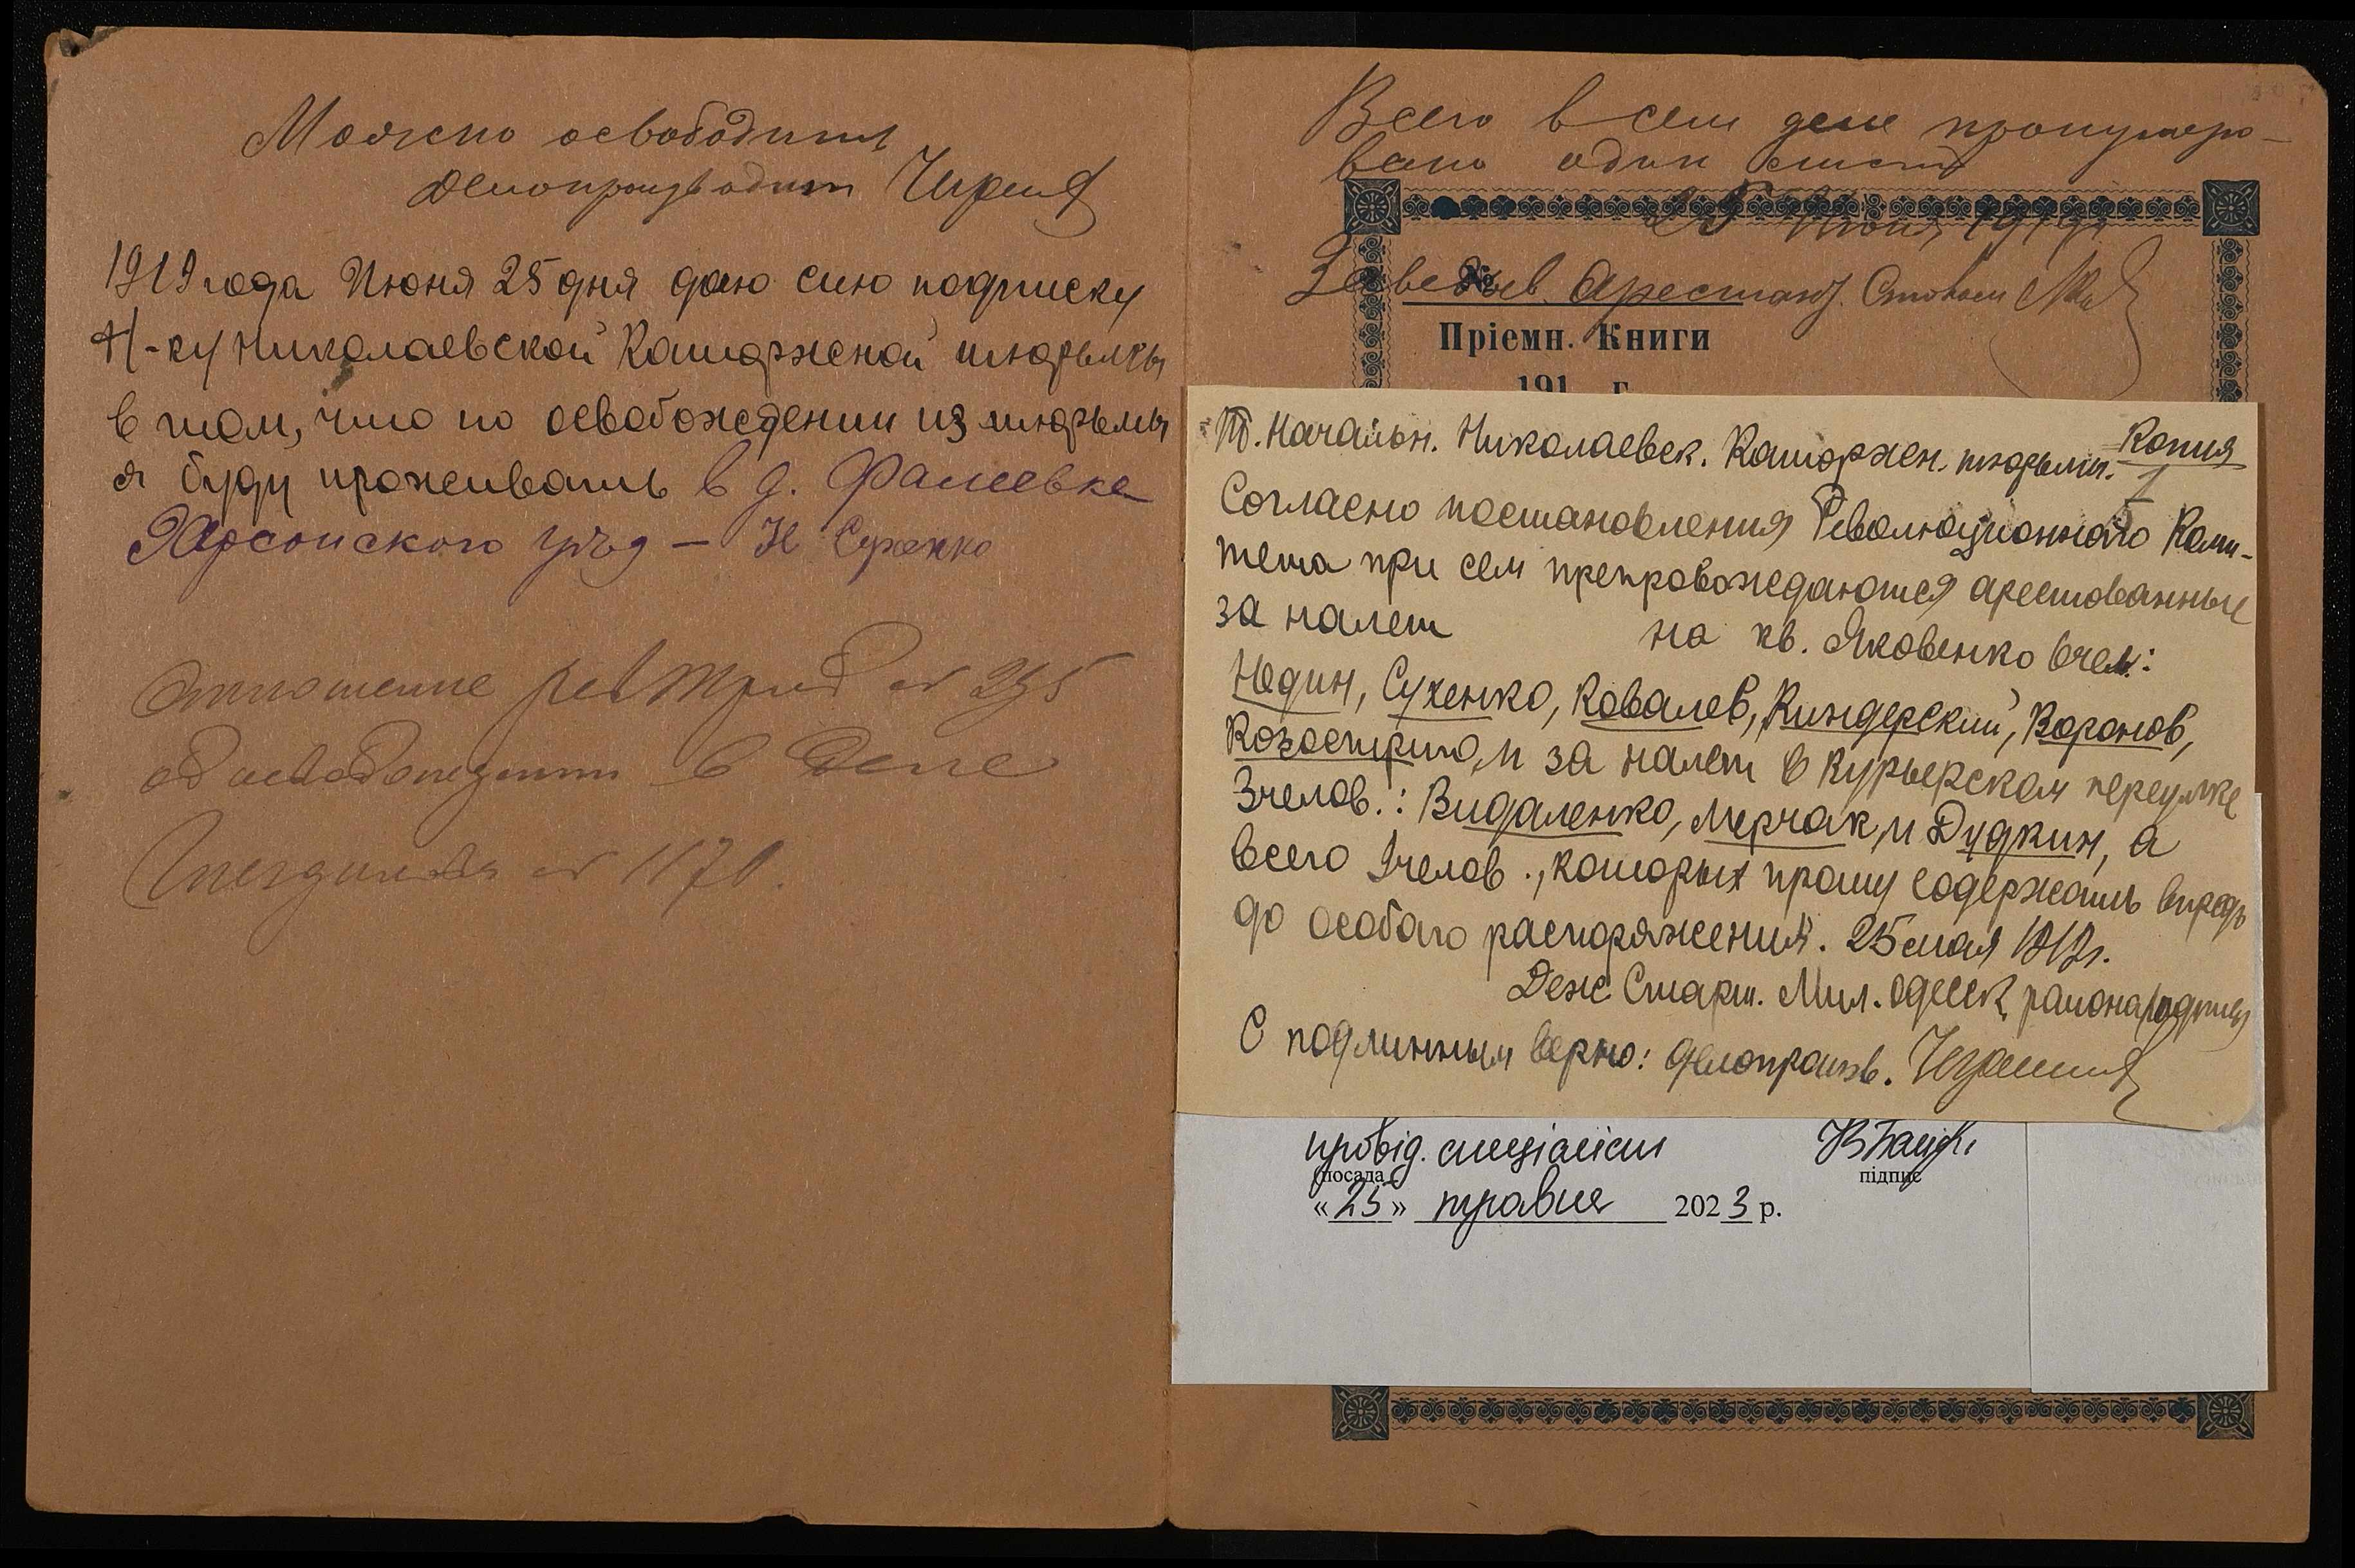 Можно освободить
Делопроизводит
1919 года Июня 25 дня даю сию подписку
Н-ку Николаевской Каторжной тюрьмы
в том, что по освобождении из тюрьмы
я буду проживать в д. Фалеевке
Херсонского уезд — Н Сухенко
Отношение РевТриб № 295
об освобождении в деле
№ 1170.
Всего в сем деле пронумеро-
вано один лист
25 Июня 1919
Заведыв. Арестант. Столом
№
Пріемн. Книги
191 г.
Копия
Т. Начальн. Николаевск. Каторжен. тюрьмы.
1
Согласно постановления Революционнаго Коми-
тета при сем препровождаются арестованные
за налет на кв. Яковенко 6 чел.:
Недин, Сухенко, Ковалев, Киндерский, Воронов,
и за налет в Курьерском переулке
3 челов.: Видаленко, Мерчак, и Дудкин, а
всего 9 челов., которых прошу содержать впредь
до особаго распоряжения. 25 мая 1919 г.
Деж. Старш. Мил. Одесск. района (подпись)
С подлинным верно: делопроизв.
провід. спеціаліст
посада
підпис
«25» травня 2023 р.